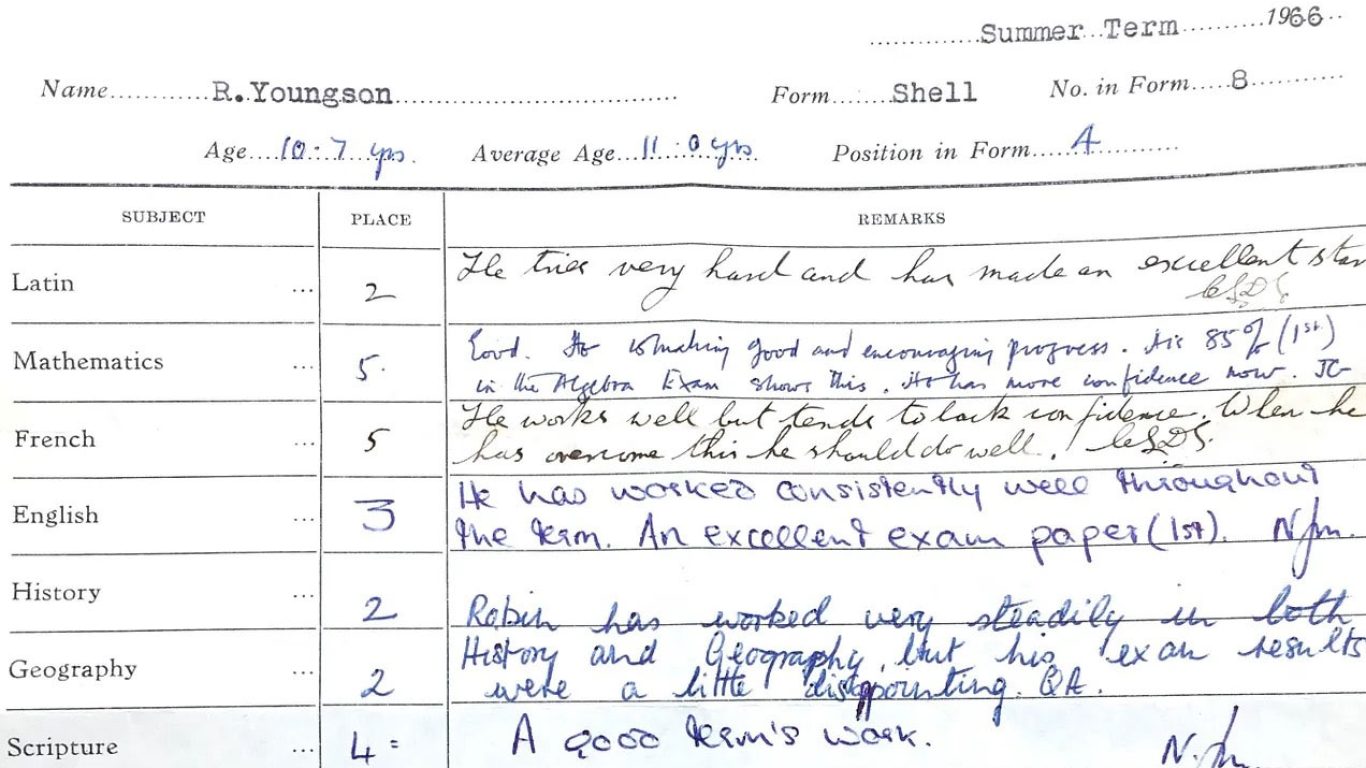 Summer Term 1966
Name R.Youngson Form Shell No. in Form 8
Age 10.7 yrs. Average Age 11.0 yrs Position in Form 4
SUBJECT PLACE REMARKS
Latin ... 2 He tries very hard and has made an excellent star
Mathematics ... 5. Good. He is making good and encouraging progress. His 85% (1st)
in the Algebra Exam shows this. He has more confidence now. JG
French ... 5 He works well but tends to lack confidence. When he
has overcome this he should do well.
English ... 3 He has worked consistently well throughout
the term. An excellent exam paper (1st).
History ... 2 Robin has worked very steadily in both
Geography ... 2 History and Geography, but his exam results
were a little disappointing. QA.
Scripture ... 4= A good term's work.